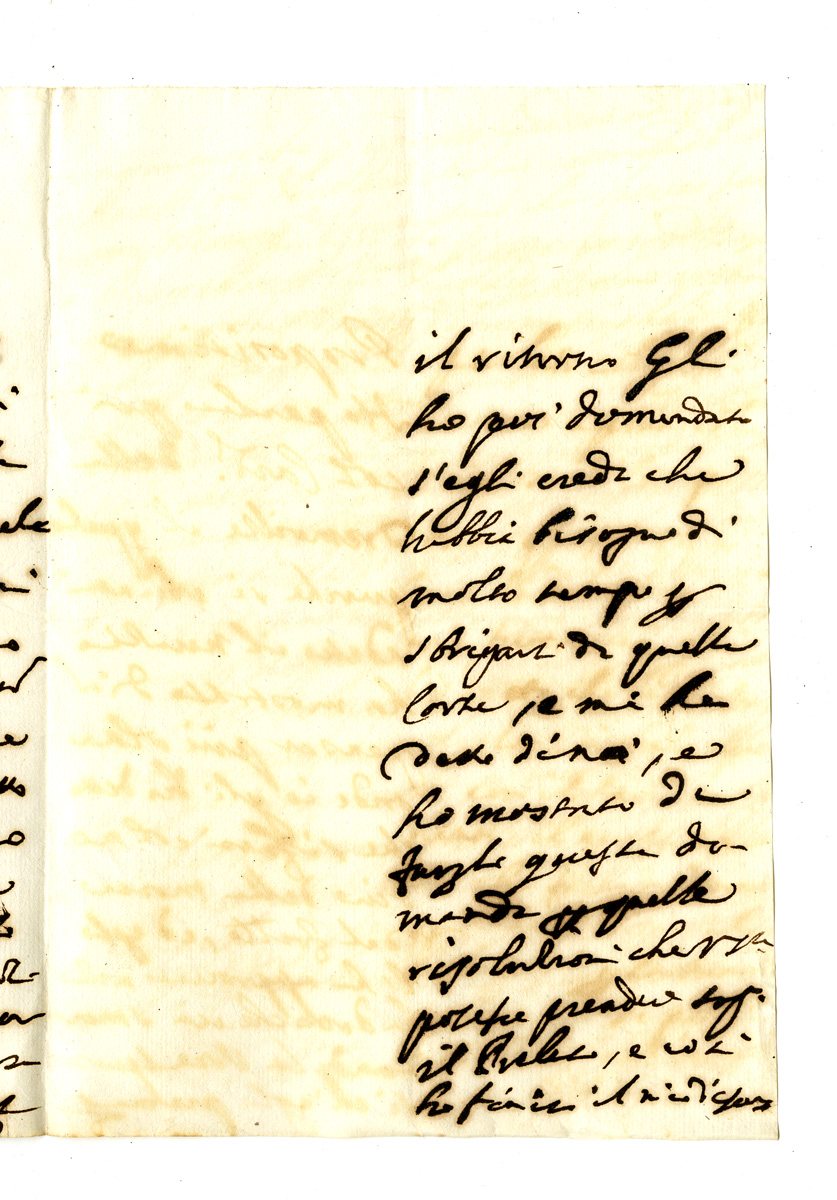 il ritorno Gli
ho poi domandato
s'egli crede che
habbia bisogno di
molto tempo p
sbrigarsi da quella
Corte, e mi ha
detto di noi, e
ho mostrato di
fargli questa do-
manda p quelle
risolutioni che
potesse prendere
il Prelato, e così
ho finito il mio discorso